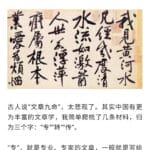 我見黃河水
凡經幾度清
水流如激箭
人世若浮萍
癡屬根本
業愛為煩惱
古人说“文章九命”,太悲观了。其实中国有更
为丰富的文章学,我简单爬梳了几条材料,归
为三个字:“专”“转”“传”。
“专”,就是专业。专家的文章,一般就是写给